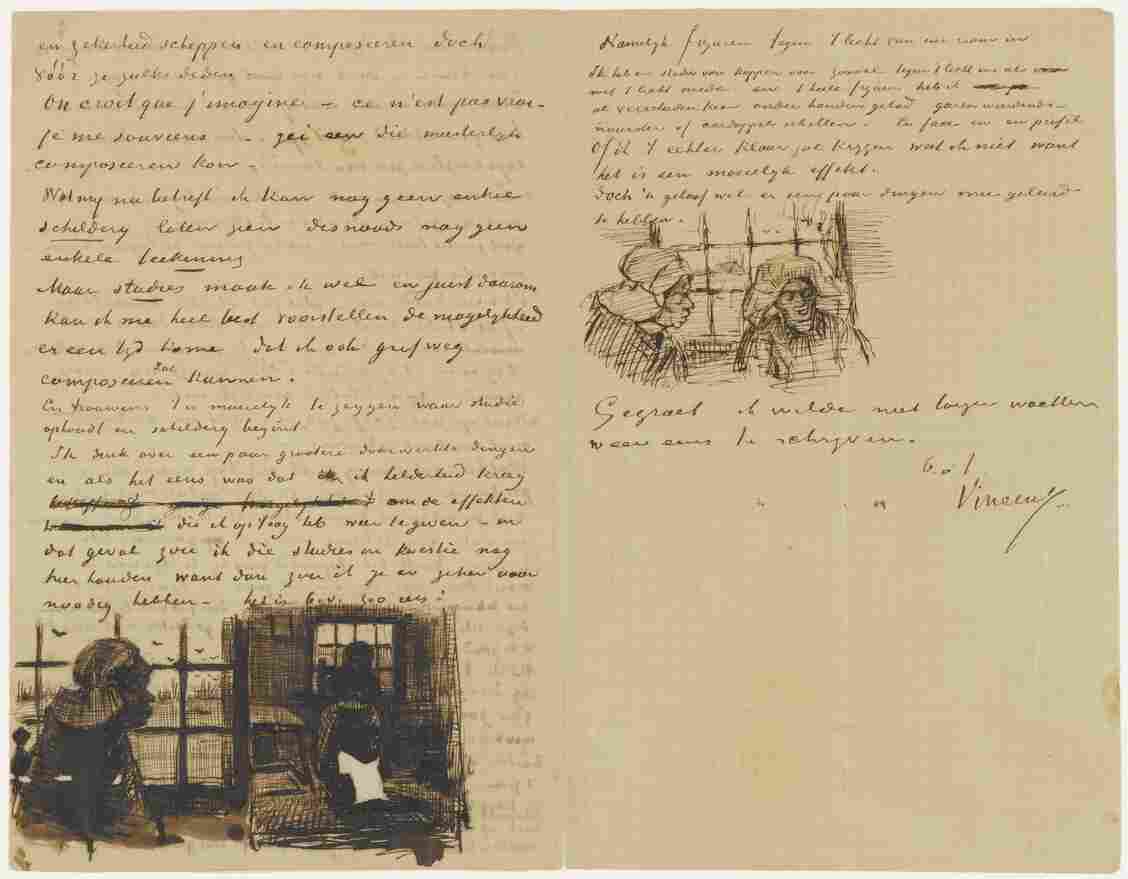 en zekerheid scheppen en composeeren doch
vóór ze zulks deden
On croit que j'imagine – ce n'est pas vrai –
je me souviens – zei een die meesterlijk
composeeren kon –
Wat mij nu betreft ik kan nog geen enkel
schilderij laten zien desnoods nog geen
enkele teekening
Maar studies maak ik wel en juist daarom
kan ik me heel best voorstellen de mogelijkheid
er een tijd kome dat ik ook grif weg
zal
composeeren kunnen.
En trouwens 't is moeielijk te zeggen waar studie
ophoudt en schilderij begint.
Ik denk over een paar grootere doorwerkte dingen
en als het eens was dat ik helderheid kreeg
om de effekten
die ik op 't oog heb weer te geven – in
dat geval zou ik die studies in kwestie nog
hier houden want dan zou ik ze er zeker voor
noodig hebben – het is b.v. zoo iets:
Namelijk figuren tegen 't licht van een raam in
Ik heb er studies van koppen voor zoowel tegen 't licht in als
met 't licht mede en 't heele figuur heb ik
al verscheiden keer onder handen gehad garenwindende
naaister of aardappelschilster. En face en en profil
Of ik 't echter klaar zal krijgen weet ik niet want
het is een moeielijk effekt.
Doch 'k geloof wel er een paar dingen mee geleerd
te hebben.
Gegroet ik wilde niet langer wachten
weer eens te schrijven.
b. à t
Vincent